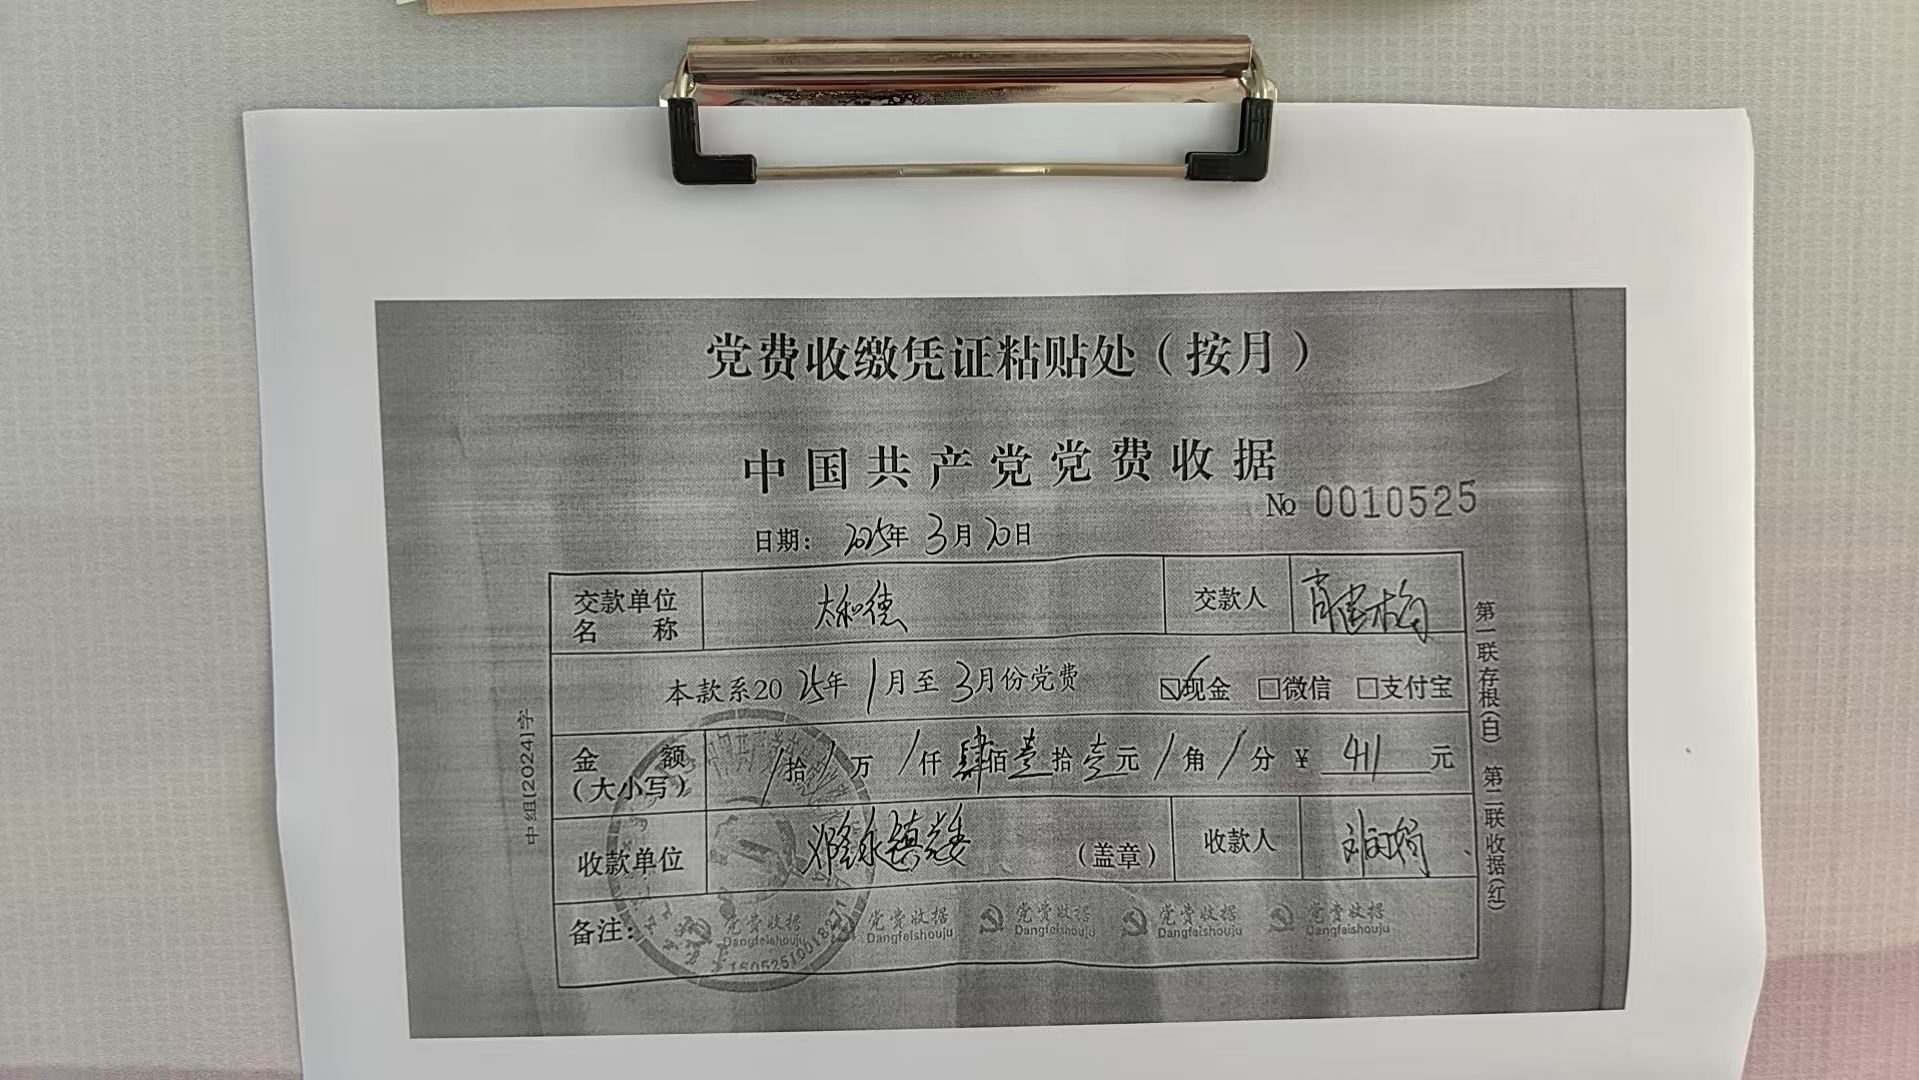 党费收缴凭证粘贴处（按月）
中国共产党党费收据
No 0010525
日期： 2025年 3月 20日
交款单位名称 太和德 交款人
本款系2025年 1月至 3月份党费 ☑现金 □微信 □支付宝
金额（大小写） /拾/万/仟肆佰壹拾壹元/角/分 ¥ 411 元
收款单位 镇党委 （盖章） 收款人
备注：
党费收据 党费收据 党费收据 党费收据 党费收据
Dangfeishouju Dangfeishouju Dangfeishouju Dangfeishouju Dangfeishouju
中组[2024]字
第一联存根(白) 第二联收据(红)